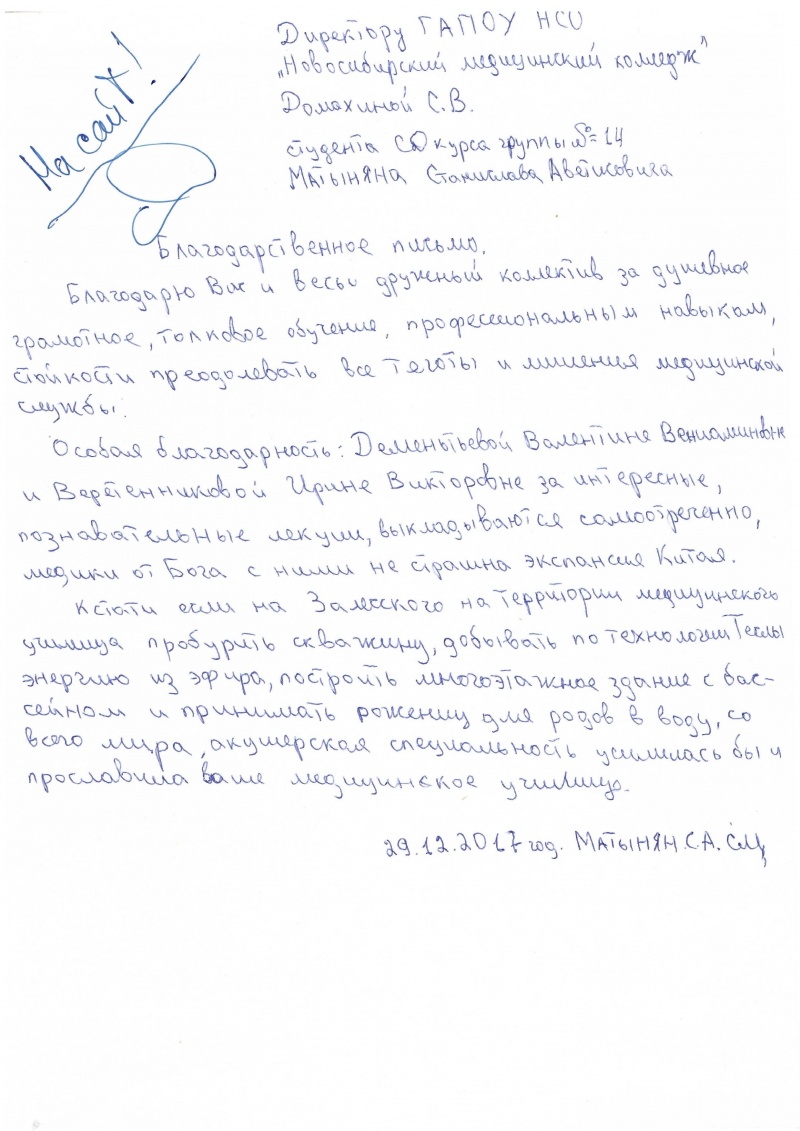 На сайт!
Директору ГАПОУ НСО
„Новосибирский медицинский колледж"
Домахиной С.В.
студента СД курса группы № 14
Матыняна Станислава Аветисовича
Благодарственное письмо.
Благодарю Вас и весьь дружный коллектив за душевное
грамотное, толковое обучение, профессиональным навыкам,
стойкости преодолевать все тяготы и лишения медицинской
службы.
Особая благодарность: Дементьевой Валентине Вениаминовне
и Веретенниковой Ирине Викторовне за интересные,
познавательные лекции, выкладываются самоотреченно,
медики от Бога с ними не страшна экспансия Китая.
Кстати если на Залесского на территории медицинского
училища пробурить скважину, добывать по технологии Теслы
энергию из эфира, построить многоэтажное здание с бас-
сейном и принимать рожениц для родов в воду, со
всего мира, акушерская специальность усилилась бы и
прославила ваше медицинское училище.
29.12.2017 год. Матынян.С.А.